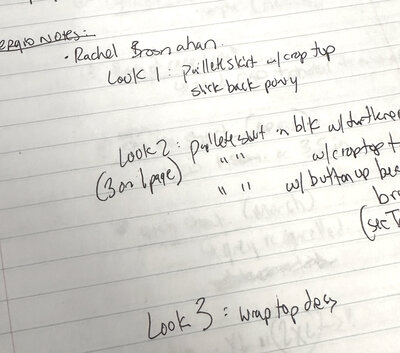 Sergio Notes:
· Rachel Brosnahan
Look 1 : paillete skirt w/ crop top
slick back pony
Look 2 : paillete skirt in blk w/ turtlene
(3 on 1 page) " " w/ crop top +
" " w/ button up
bra
(see T
Look 3 : wrap top